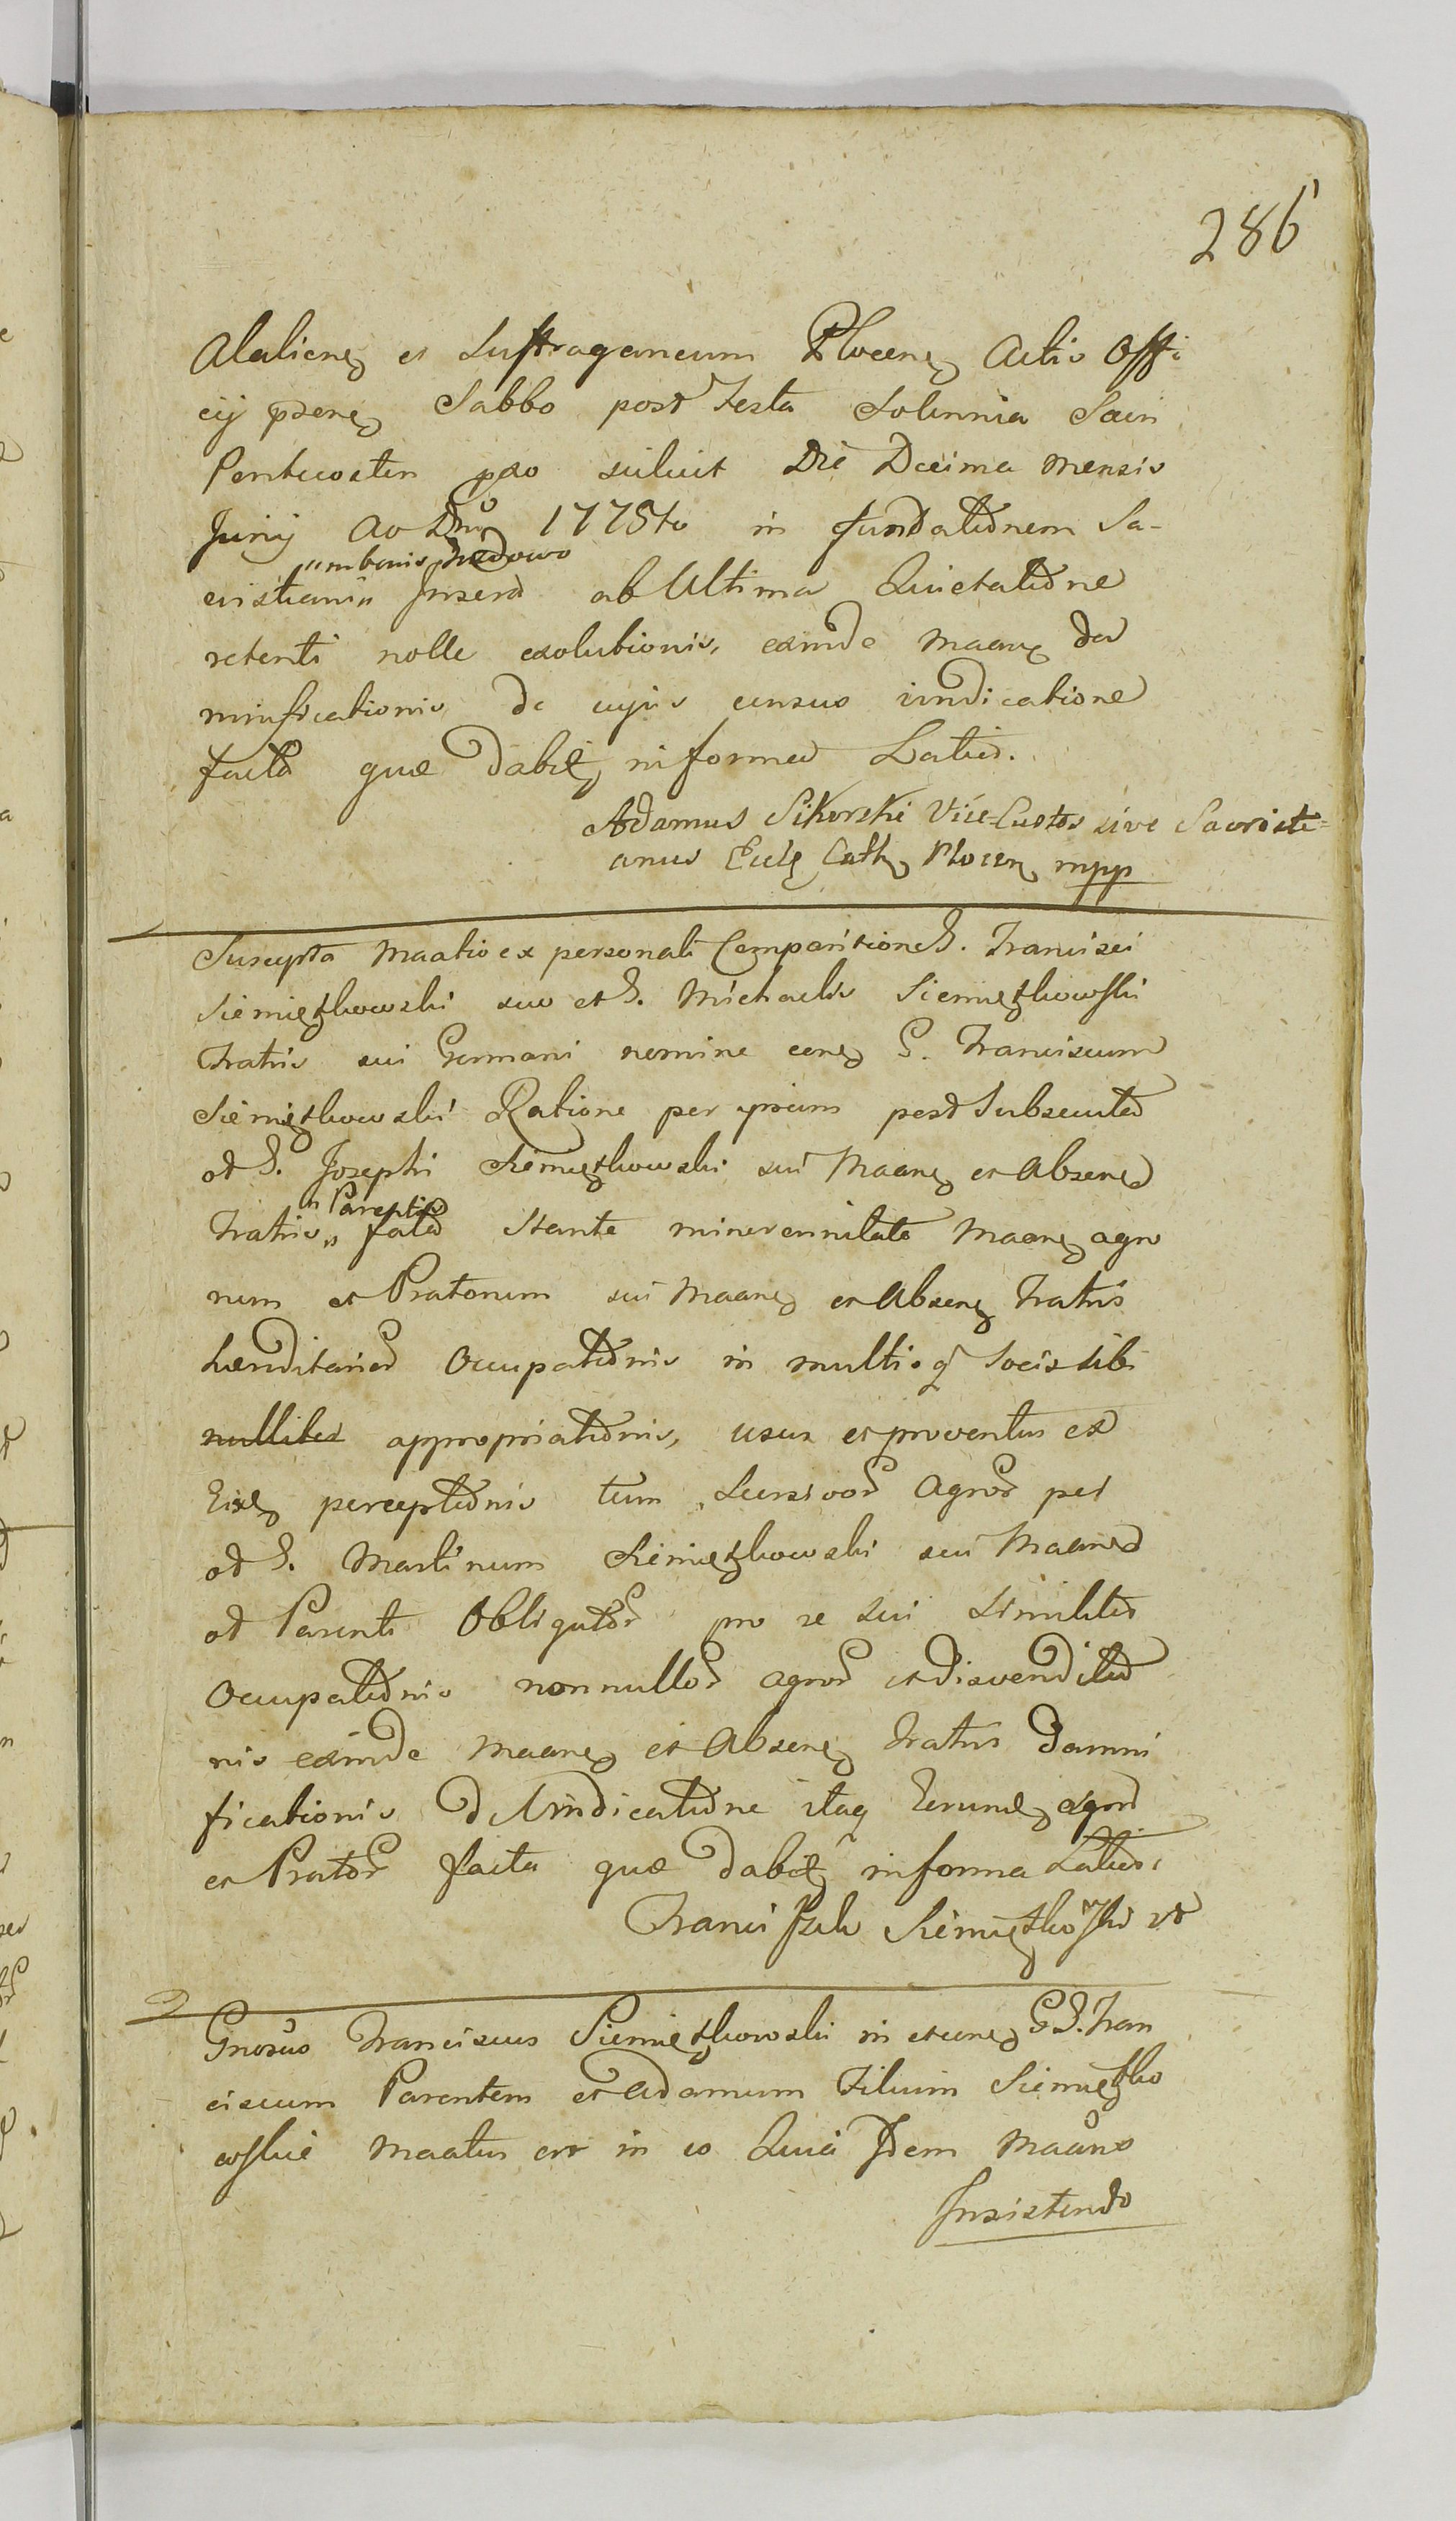 286
Alaliens et Suffraganeum Plocens Actis Offi
cij psens Sabbo post Festa Solennia Sacri
Pentecosten pxo scilicet Die Decima mensis
Junij Ao Dni 1775to in fundationem Sa-
" in bonis
cristiani " Inserv ab Ultima Quietatione
retenti nolle exolutionis, exinde Maans da
mnificationis de cujus census vindicatione
facta quæ dabit informa Latius.
Adamus Sikorski Vice-Custos sive Sacristi=
anus Eccle Cath Plocen mpp
Suscepta Maatio ex personali Comparitione G. Francisci
Siemiętkowski suo et G. Michaelis Siemiętkowski
Fratris sui Germani nomine cons G. Franciscum
Siemiętkowski Ratione per ipsum post Subsecuta
ot G. Josephi Siemiętkowski sui Maans et Absens
" Parentis
Fratris " fata stante minorennitate Maans agro
rum et Pratorum sui Maans et Absens Fratris
hæreditarior Occupationis in multisq locis sibi
appropriationis, usus et proventus ex
Eisd perceptionis tum diversor Agror per
ot G. Martinum Siemiętkowski sui Maans
ot Parenti Obligator pro se sui similiter
Occupationis nonnullor agror et disvenditio
nis exinde Maans et Absens Fratris damni
ficationis de Vindicatione itaq Eorund agror
et Prator facta quæ dabit informa Latius.
Franciszek Siemiętkowski
Gnosus Franciscus Siemiętkowski in et cons GG. Fran
ciscum Parentem et Adamum Filium Siemiętko
wskie Maatus est in eo Quia Idem Maans
Insistendo